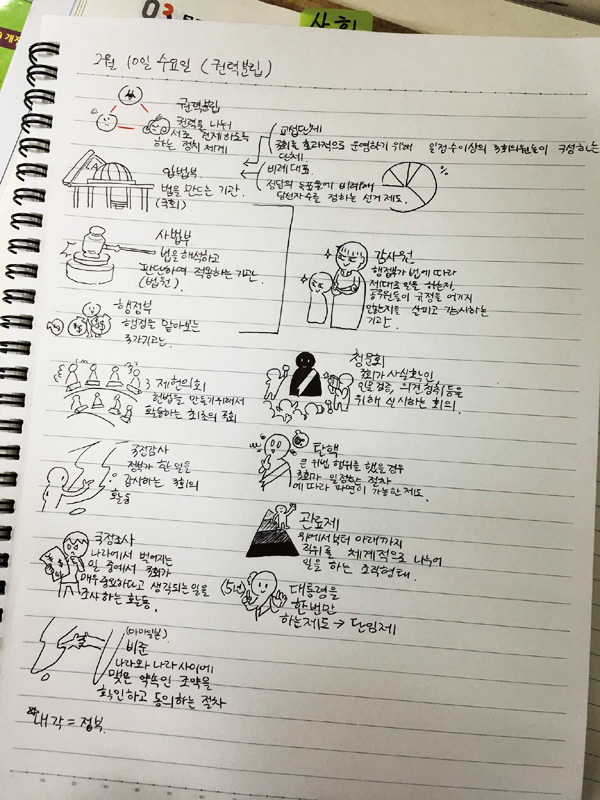 03
사회
2월 10일 수요일 (권력분립)
권력분립
권력을 나눠
서로 견제하도록
하는 정치 체계
교섭단체
국회를 효과적으로 운영하기 위해 일정수이상의 국회의원들이 구성하는
단체.
비례대표.
정당의 득표율에 비례해
당선자수를 정하는 선거 제도.
%
입법부
법을 만드는 기관.
(국회)
사법부
법을 해석하고
판단하여 적용하는 기관
(법원)
감사원
행정부가 법에 따라
제대로 일을 하는지,
공무원들이 규정을 어기지
않는지를 살피고 감시하는
기관.
행정부
행정을 맡아보는
국가기관.
제헌의회
헌법을 만들기위해서
활동하는 최초의 국회
청문회
국회가 사실확인
인물검증, 의견청취등을
위해 실시하는 회의.
국정감사
정부가 한 일을
감사하는 국회의
활동
탄핵
큰 위법 행위를 했을경우
국회가 일정한 절차
에 따라 파면이 가능한제도.
관료제
위에서부터 아래까지
직위를 체계적으로 나누어
일을 하는 조직형태.
국정조사
나라에서 벌어지는
일 중에서 국회가
매우중요하다고 생각되는일을
조사하는 활동.
(5년)
대통령을
한번만
하는제도 → 단임제
비준
나라와 나라사이에
맺은 약속인 조약을
확인하고 동의하는 절차
*내각 = 정부.